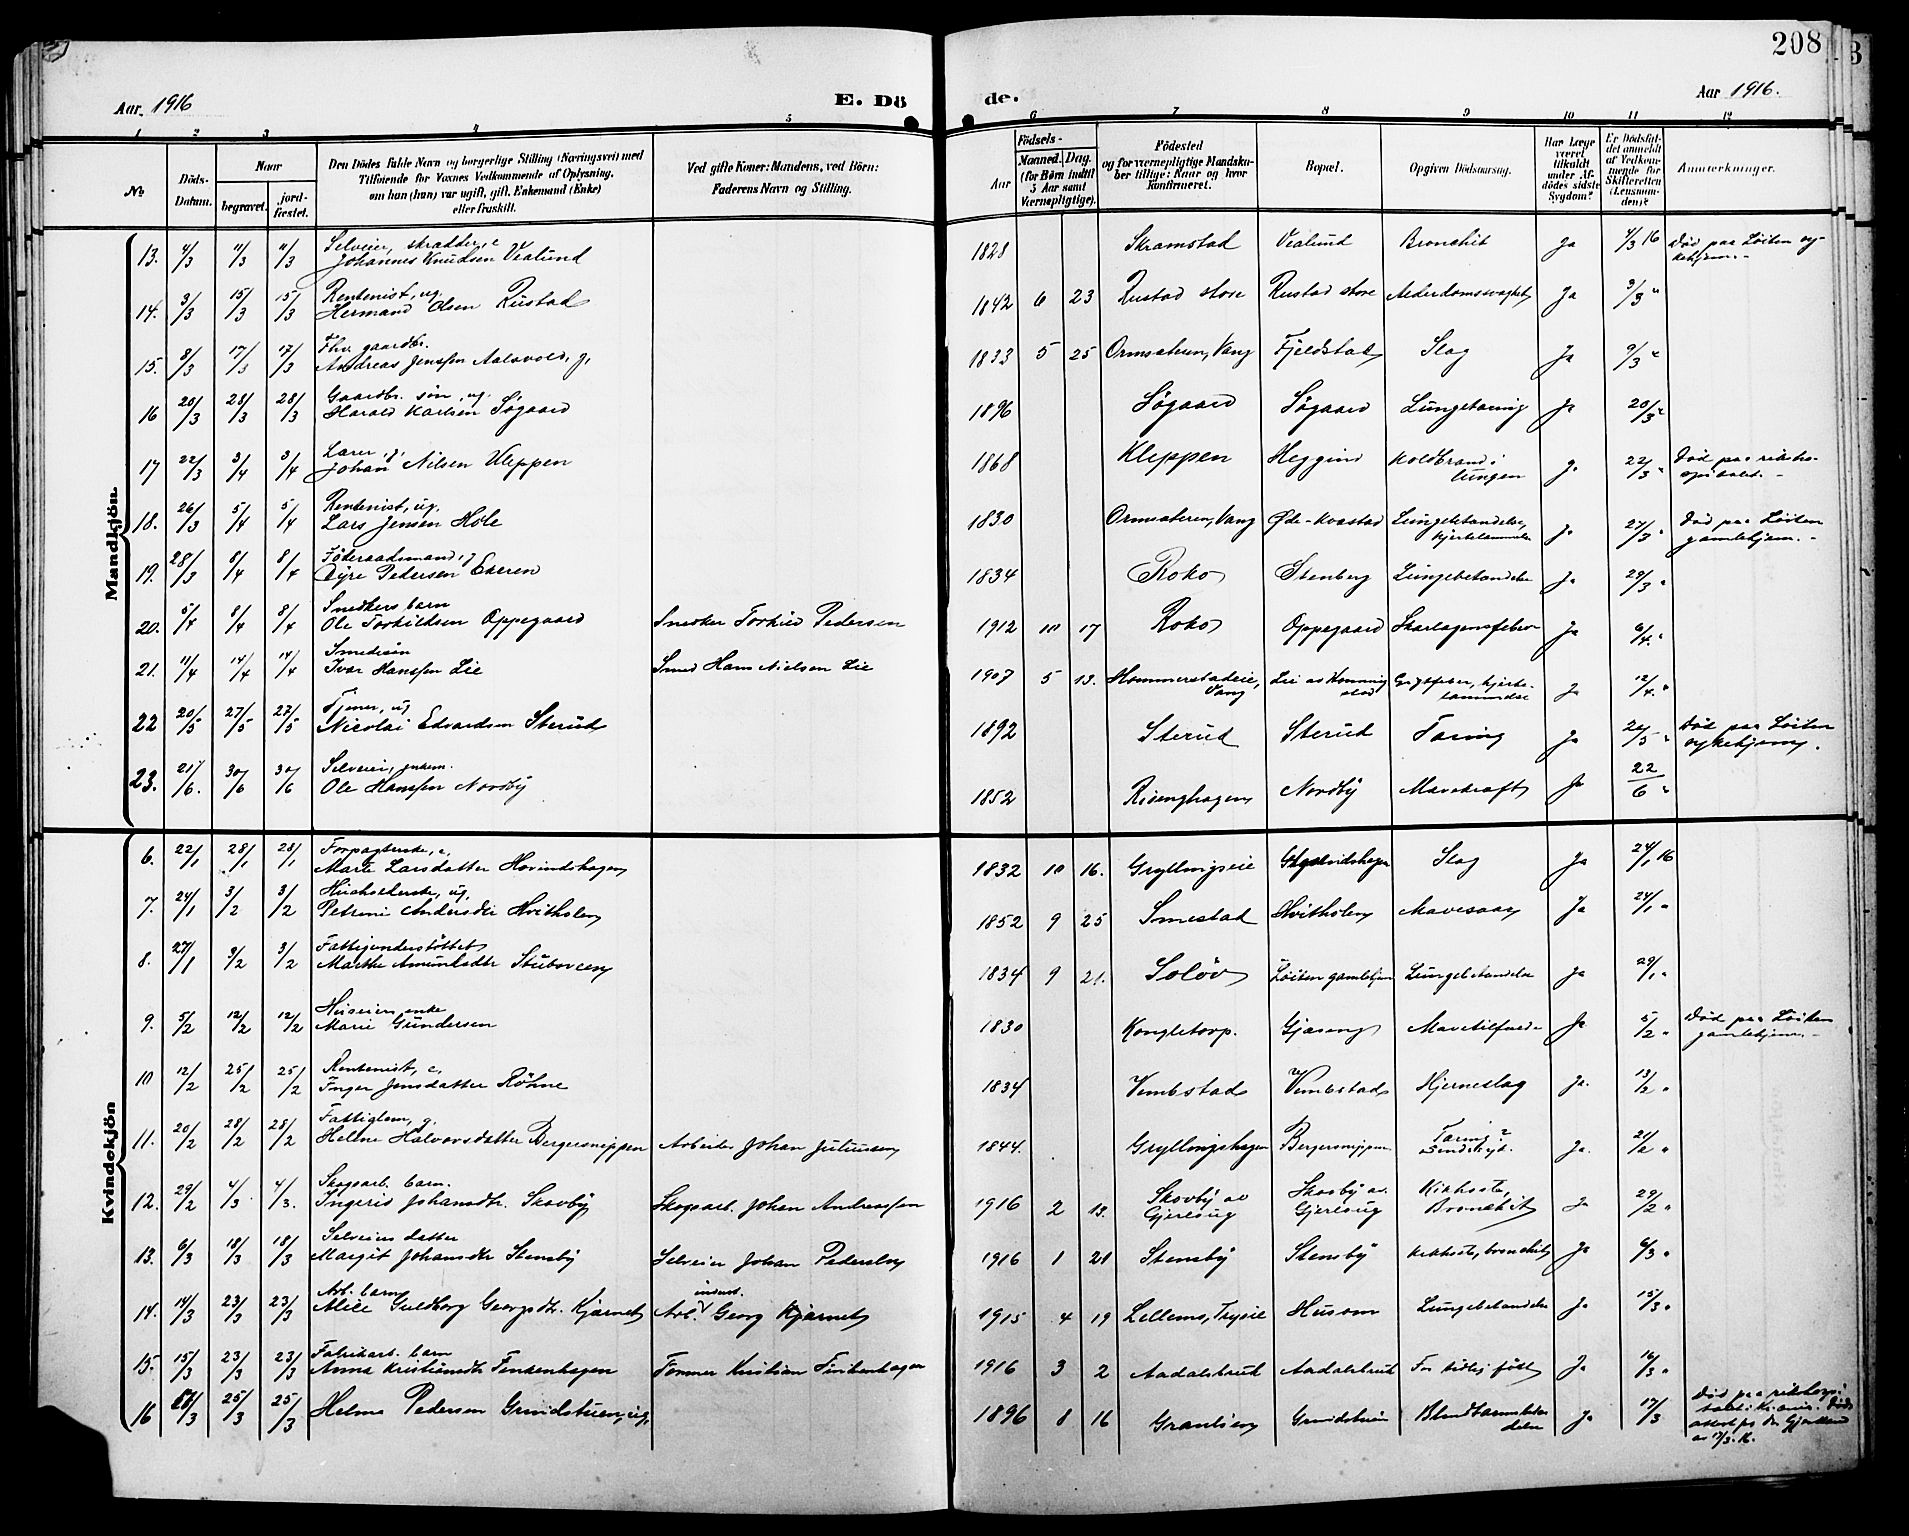 208
Aar 1916
E. Dö
de.
Aar 1916.
1 2 3 4 5 6 7 8 9 10 11 12
No
Döds-Datum.
Naar
begravet.
jord-fæstet.
Den Dödes fulde Navn og borgerlige Stilling (Næringsvei) med
Tilföiende for Voxnes Vedkommende af Oplysning,
om han (hun) var ugift, gift, Enkemand (Enke)
eller fraskilt.
Ved gifte Koner: Mandens, ved Börn:
Faderens Navn og Stilling.
Födsels-
Aar
Maaned. Dag.
(for Börn indtil
5 Aar samt
Værnepligtige).
Födested
og for værnepligtige Mandska-
ber tillige: Naar og hvor
konfirmeret.
Bopæl.
Opgiven Dödsaarsag.
Har Læge
været
tilkaldt
under Af-
dödes sidste
Sygdom?
Er Dödsfal-
det anmeldt
af Vedkom-
mende for
Skifteretten
(Lensman-
den)?
Anmærkninger.
Mandkjön.
13. 4/3 11/3 11/3 Selveier, skradder, e
Johannes Knudsen Vealund 1828 Skramstad Vealund Bronchit Ja 4/3 16 Død paa Löiten sy-
kehjem.
14. 3/3 15/3 15/3 Rentenist, ug.
Hermand Olsen Rustad 1842 6 23 Rustad store Rustad store Alderdomssvaghet Ja 3/3 "
15. 8/3 17/3 17/3 Fhv. gaardbr.
Andreas Jenssen Aalsvold, g. 1833 5 25 Ormsæteren, Vang Fjeldstad Slag Ja 9/3 "
16 20/3 28/3 28/3 Gaardbr. søn, ug.
Harald Karlsen Søgaard 1896 Søgaard Søgaard Lungetæring Ja 20/3 "
17 22/3 3/4 3/4 Lærer, g.
Johan Nilsen Kleppen 1868 Kleppen Heggind Koldbrand i
lungen Ja 22/3 " Død paa rikshos-
pitalet.
18. 26/3 5/4 5/4 Rentenist, ug.
Lars Jensen Hole 1830 Ormsæteren, Vang Øde-Kvastad Lungebetændelse,
hjertelammelse Ja 27/3 " Død paa Løiten
gamlehjem.
19. 28/3 8/4 8/4 Föderaadsmand, g
Pedersen Ekeren 1834 Roko Stenberg Lungebetændelse Ja 29/3 "
20. 5/4 8/4 8/4 Snedkers barn
Ole Torkildsen Oppegaard Snedker Torkild Pedersen 1912 10 17 Roko Oppegaard Skarlagensfeber Ja 6/4 "
21. 11/4 14/4 14/4 Smedssøn
Ivar Hanssen Lie Smed Hans Nielsen Lie 1907 5 13. Hommerstadeie,
Vang Lie av
Gigtfeber, hjerte-
lammelse Ja 12/4 "
22 20/5 27/5 27/5 Tjener, ug
Nicolai Edvardsen Sterud 1892 Sterud Sterud Tæring Ja 20/5 " Død paa Løiten
sykehjem.
23. 21/6. 30/6 30/6 Selveier, enkem.
Ole Hanssen Nordby 1852 Risenghagen Nordby Mavekræft Ja 22/6 "
Kvindekjön
6. 22/1 28/1 28/1 Forpagterske, e.
Marte Larsdatter Hovindshagen 1832 10 16. Gryllingseie Slag Ja 24/1 16
7. 24/1 3/2 3/2 Husholderske, ug.
Petrine Andersdtr Hvitholen 1852 9 25 Smestad Hvitholen Mavesaar Ja 24/1 "
8. 27/1 3/2 3/2 Fattigunderstøttet
Marthe Amundsdtr Stubsveen 1834 9 21. Soløv Løiten gamlehjem Lungebetændelse Ja 29/1 "
9. 5/2 12/2 12/2 Huseier, enke
Marie Gundersen 1830 Kongletorp. Gjæseng Mavetilfælde Ja 5/2 " Død paa Løiten
gamlehjem.
10 12/2 25/2 25/2 Rentenist, e.
Inger Jensdatter Röhne 1834 Vembstad Vembstad Hjerneslag Ja. 13/2 "
11. 20/2 28/2 28/2 Fattiglem, g.
Helene Halvorsdatter Bergersneppen Arbeider Johan Juliussen 1844. Gryllingshagen Bergersneppen Tæring?
Ja. 21/2 "
12. 29/2 4/3 4/3. Skogsarb. barn.
Ingerid Johansdtr. Skovby Skogsarb. Johan Andreassen 1916 2 13. Skovby av
Gjerlaug Skovby av.
Gjerlaug Kikhoste,
Bronchit Ja 29/2 "
13. 6/3 18/3 18/3 Selveiers datter
Margit Johansdtr Stensby Selveier Johan Pedersen 1916 1 21 Stensby Stensby Kikhoste, bronchit Ja 6/3 "
14. 14/3 23/3 23/3 Arb. barn
Alice Guldborg Georgsdtr. Kjærnet Arb. Georg Kjærnet 1915 4 19 Lellems, Husom Lungebetændelse Ja 15/3 "
15. 15/3 23/3 23/3 Fabrikarb. barn
Anna Kristiansdtr Finkenhagen Former Kristian Finkenhagen 1916 3 2 Aadalsbrud Aadalsbrud For tidlig født Ja 16/3 "
16 25/3 25/3 Helma Pedersen Grundstuen, ug. 1896 8 16 Granlien Grundstuen Blindtarmsbetæn-
delse Ja 17/3 Død paa rikshospi-
talet i Kr.ania. Døds-